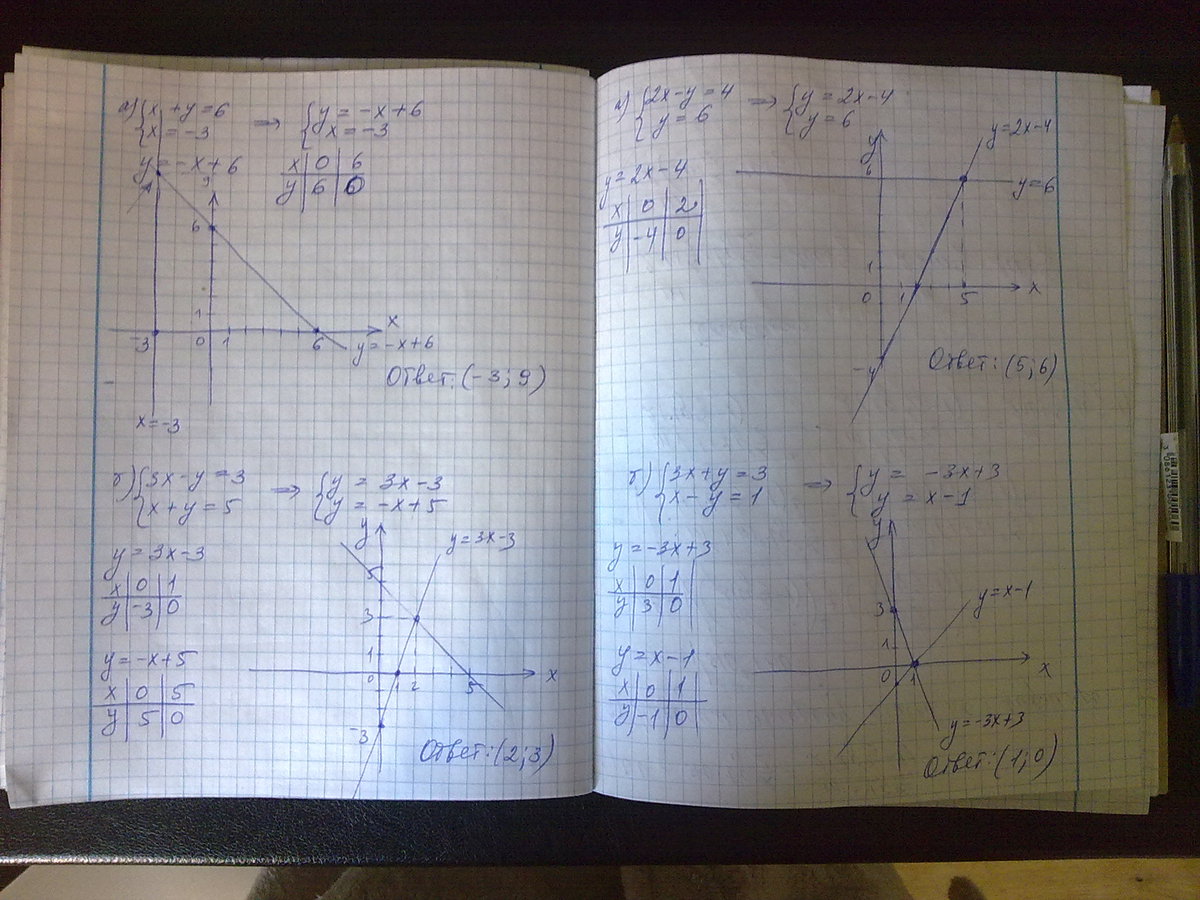 а) { x + y = 6 ⇒ { y = -x + 6
x = -3 x = -3
y = -x + 6
x | 0 | 6
y | 6 | 0
9
6
1
-3 0 1 6 x
y = -x + 6
Ответ: (-3; 9)
x = -3
б) { 3x - y = 3 ⇒ { y = 3x - 3
x + y = 5 y = -x + 5
y = 3x - 3
x | 0 | 1
y | -3 | 0
y = -x + 5
x | 0 | 5
y | 5 | 0
y
y = 3x - 3
5
3
1
0 1 2 5 x
-3
Ответ: (2; 3)
а) { 2x - y = 4 ⇒ { y = 2x - 4
y = 6 y = 6
y = 2x - 4
x | 0 | 2
y | -4 | 0
y
y = 2x - 4
6
y = 6
1
0 1 5 x
-4
Ответ: (5; 6)
б) { 3x + y = 3 ⇒ { y = -3x + 3
x - y = 1 y = x - 1
y = -3x + 3
x | 0 | 1
y | 3 | 0
y = x - 1
x | 0 | 1
y | -1 | 0
y
y = x - 1
3
1
0 1 x
y = -3x + 3
Ответ: (1; 0)